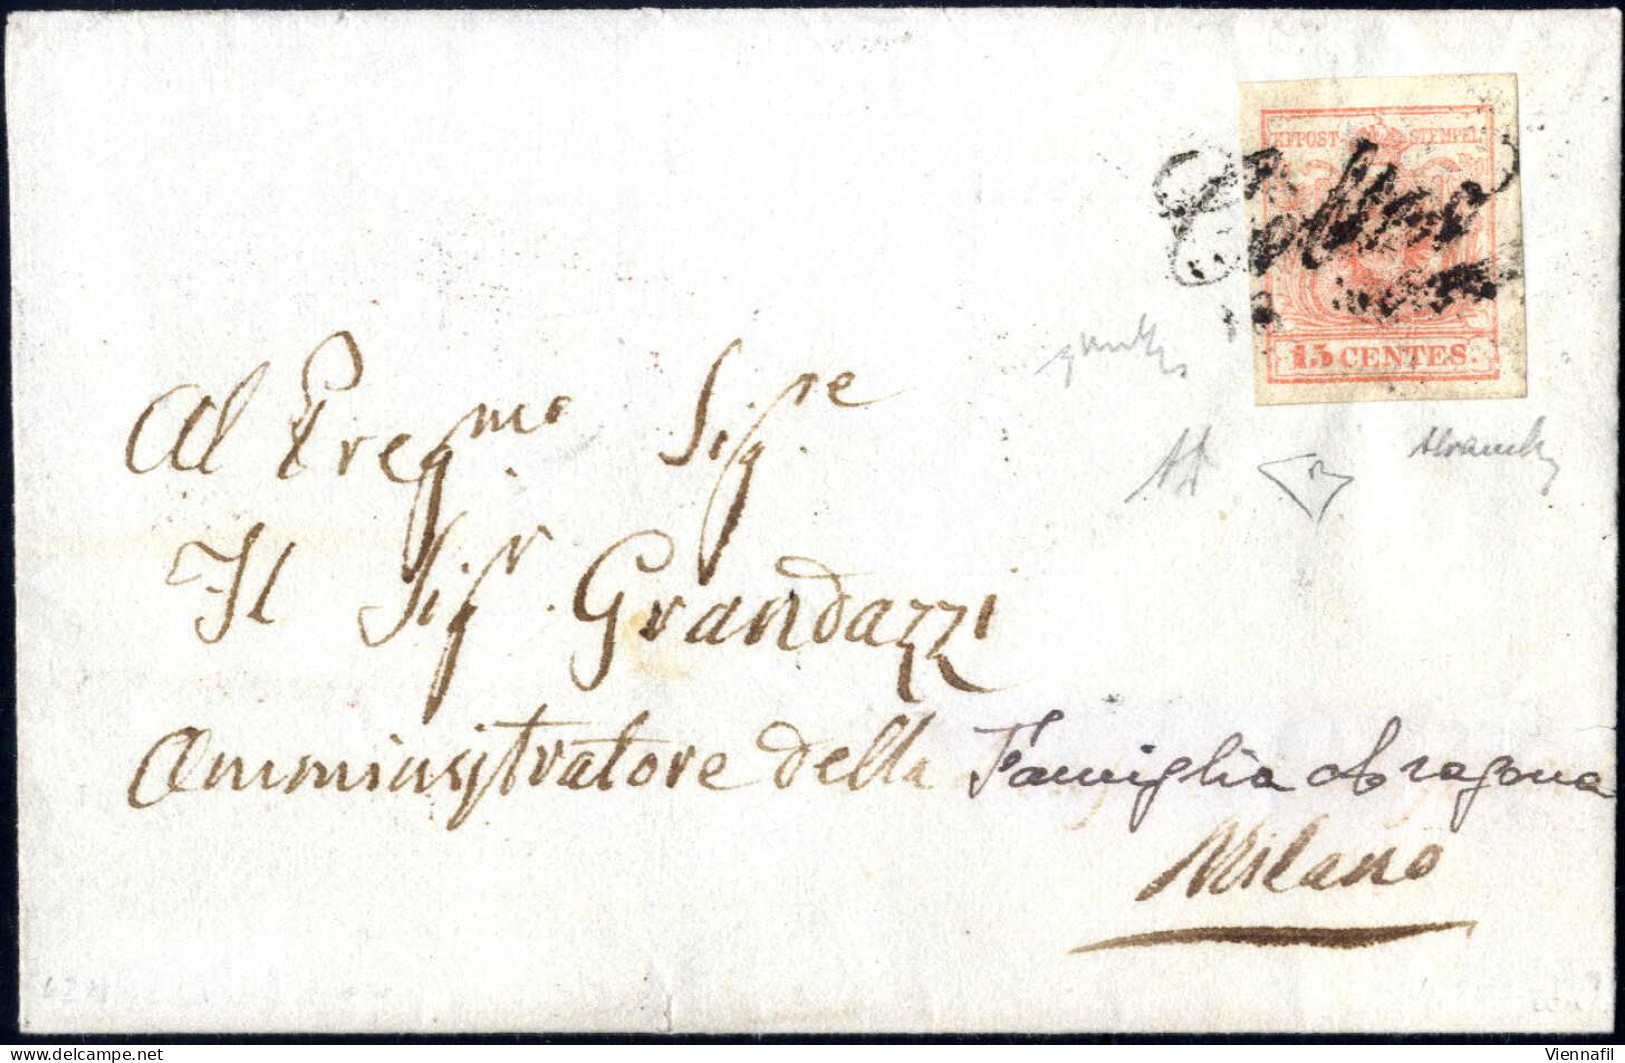 KKPOST-STEMPEL
15 CENTES.
Al Pregmo Sigre
Il Sigr Grandazzi
Amministratore della Famiglia Aragona
Milano
Viennafil